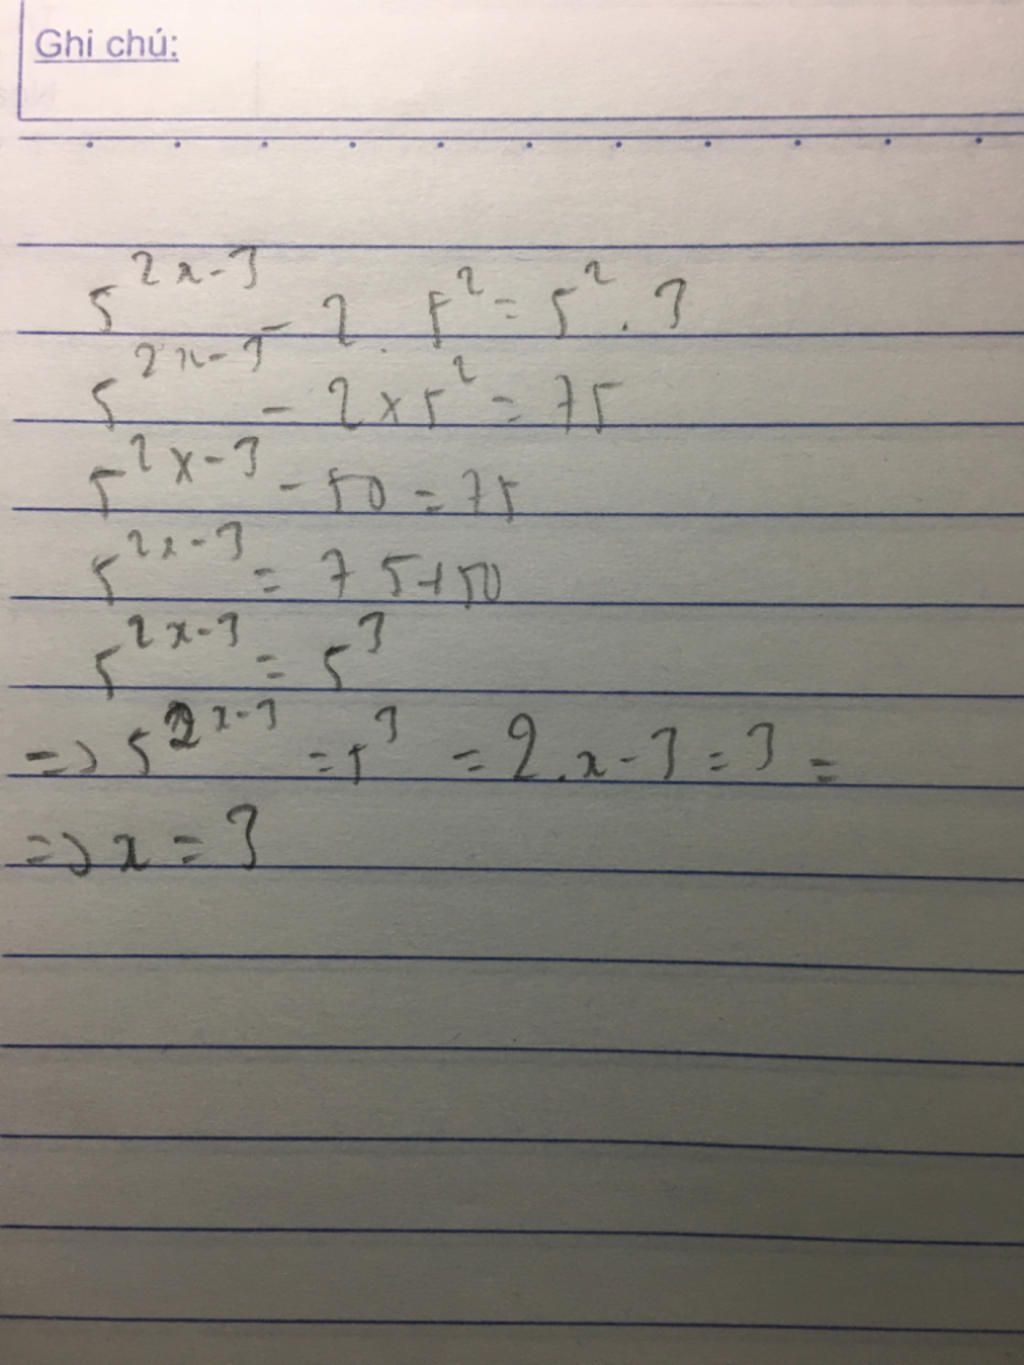 Ghi chú:
5^{2x-3} - 2 . 5^2 = 5^2 . 3
5^{2x-3} - 2 × 5^2 = 75
5^{2x-3} - 50 = 75
5^{2x-3} = 75+50
5^{2x-3} = 5^3
=> 5^{2x-3} = 5^3 = 2.x-3 = 3 =
=> x = 3